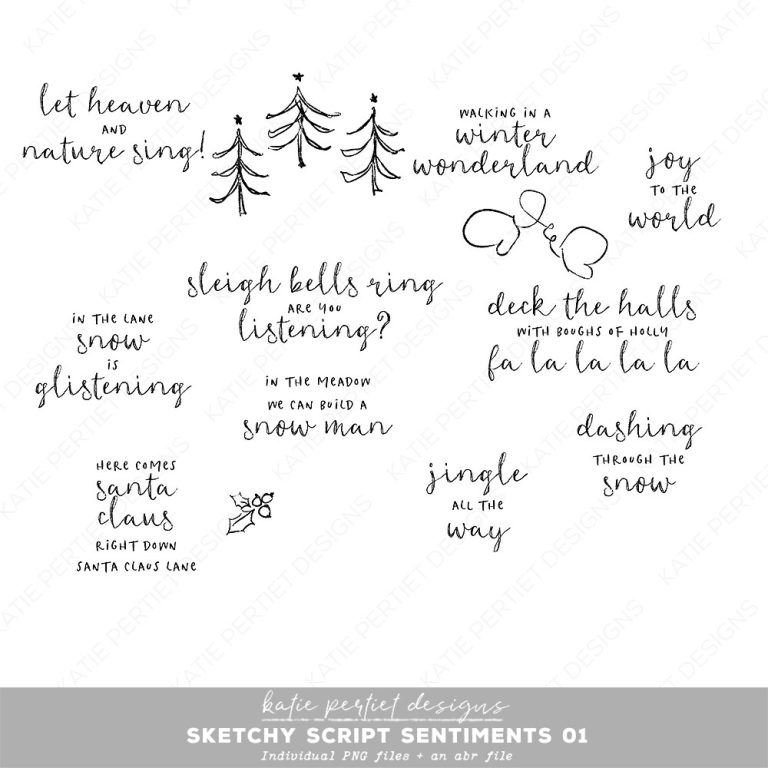 let heaven
AND
nature sing!
WALKING IN A
winter
wonderland
joy
TO THE
world
sleigh bells ring
ARE YOU
listening?
deck the halls
WITH BOUGHS OF HOLLY
fa la la la la
IN THE LANE
snow
IS
glistening
IN THE MEADOW
WE CAN BUILD A
snow man
dashing
THROUGH THE
snow
HERE COMES
santa
claus
RIGHT DOWN
SANTA CLAUS LANE
jingle
ALL THE
way
KATIE PERTIET DESIGNS
katie pertiet designs
SKETCHY SCRIPT SENTIMENTS 01
Individual PNG files + an abr file